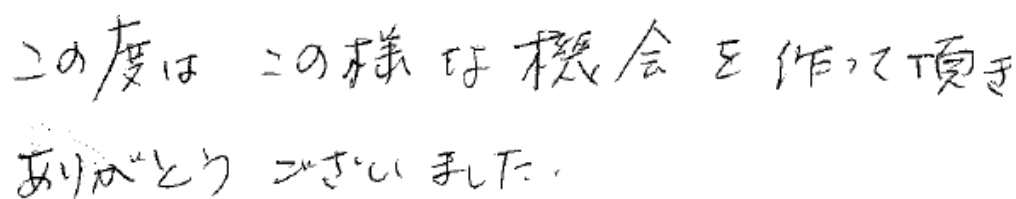 この度は この様な機会を作って頂き
ありがとう ございました.